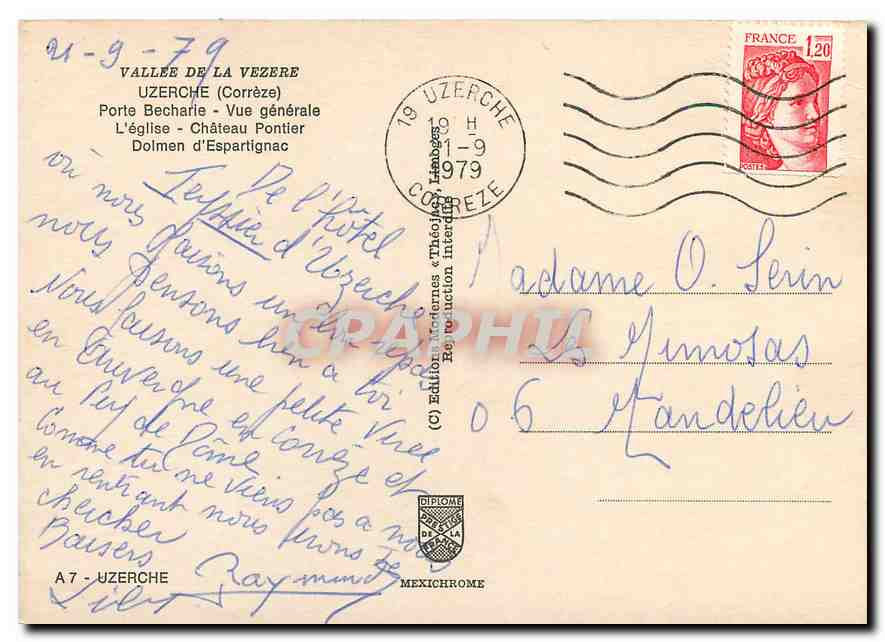 21-9-79
VALLEE DE LA VEZERE
UZERCHE (Corrèze)
Porte Becharie - Vue générale
L'église - Château Pontier
Dolmen d'Espartignac
De l'hôtel
Teyssier d'Uzerche
où nous faisons un repas
nous pensons bien à toi
Nous faisons une petite virée
en Auvergne en Corrèze et
au Puy de Dôme
Comme tu ne viens pas à nous
en rentrant nous irons te
chercher
Baisers
Raymonde
A 7 - UZERCHE
(C) Editions Modernes «Théojac», Limoges
Reproduction interdite
19 UZERCHE
19 H
21-9
1979
CORREZE
FRANCE 1,20
POSTES
Madame O. Serin
Les Mimosas
06 Mandelieu
CPAPHIL
DIPLOME
PRESTIGE
DE LA
FRANCE
MEXICHROME